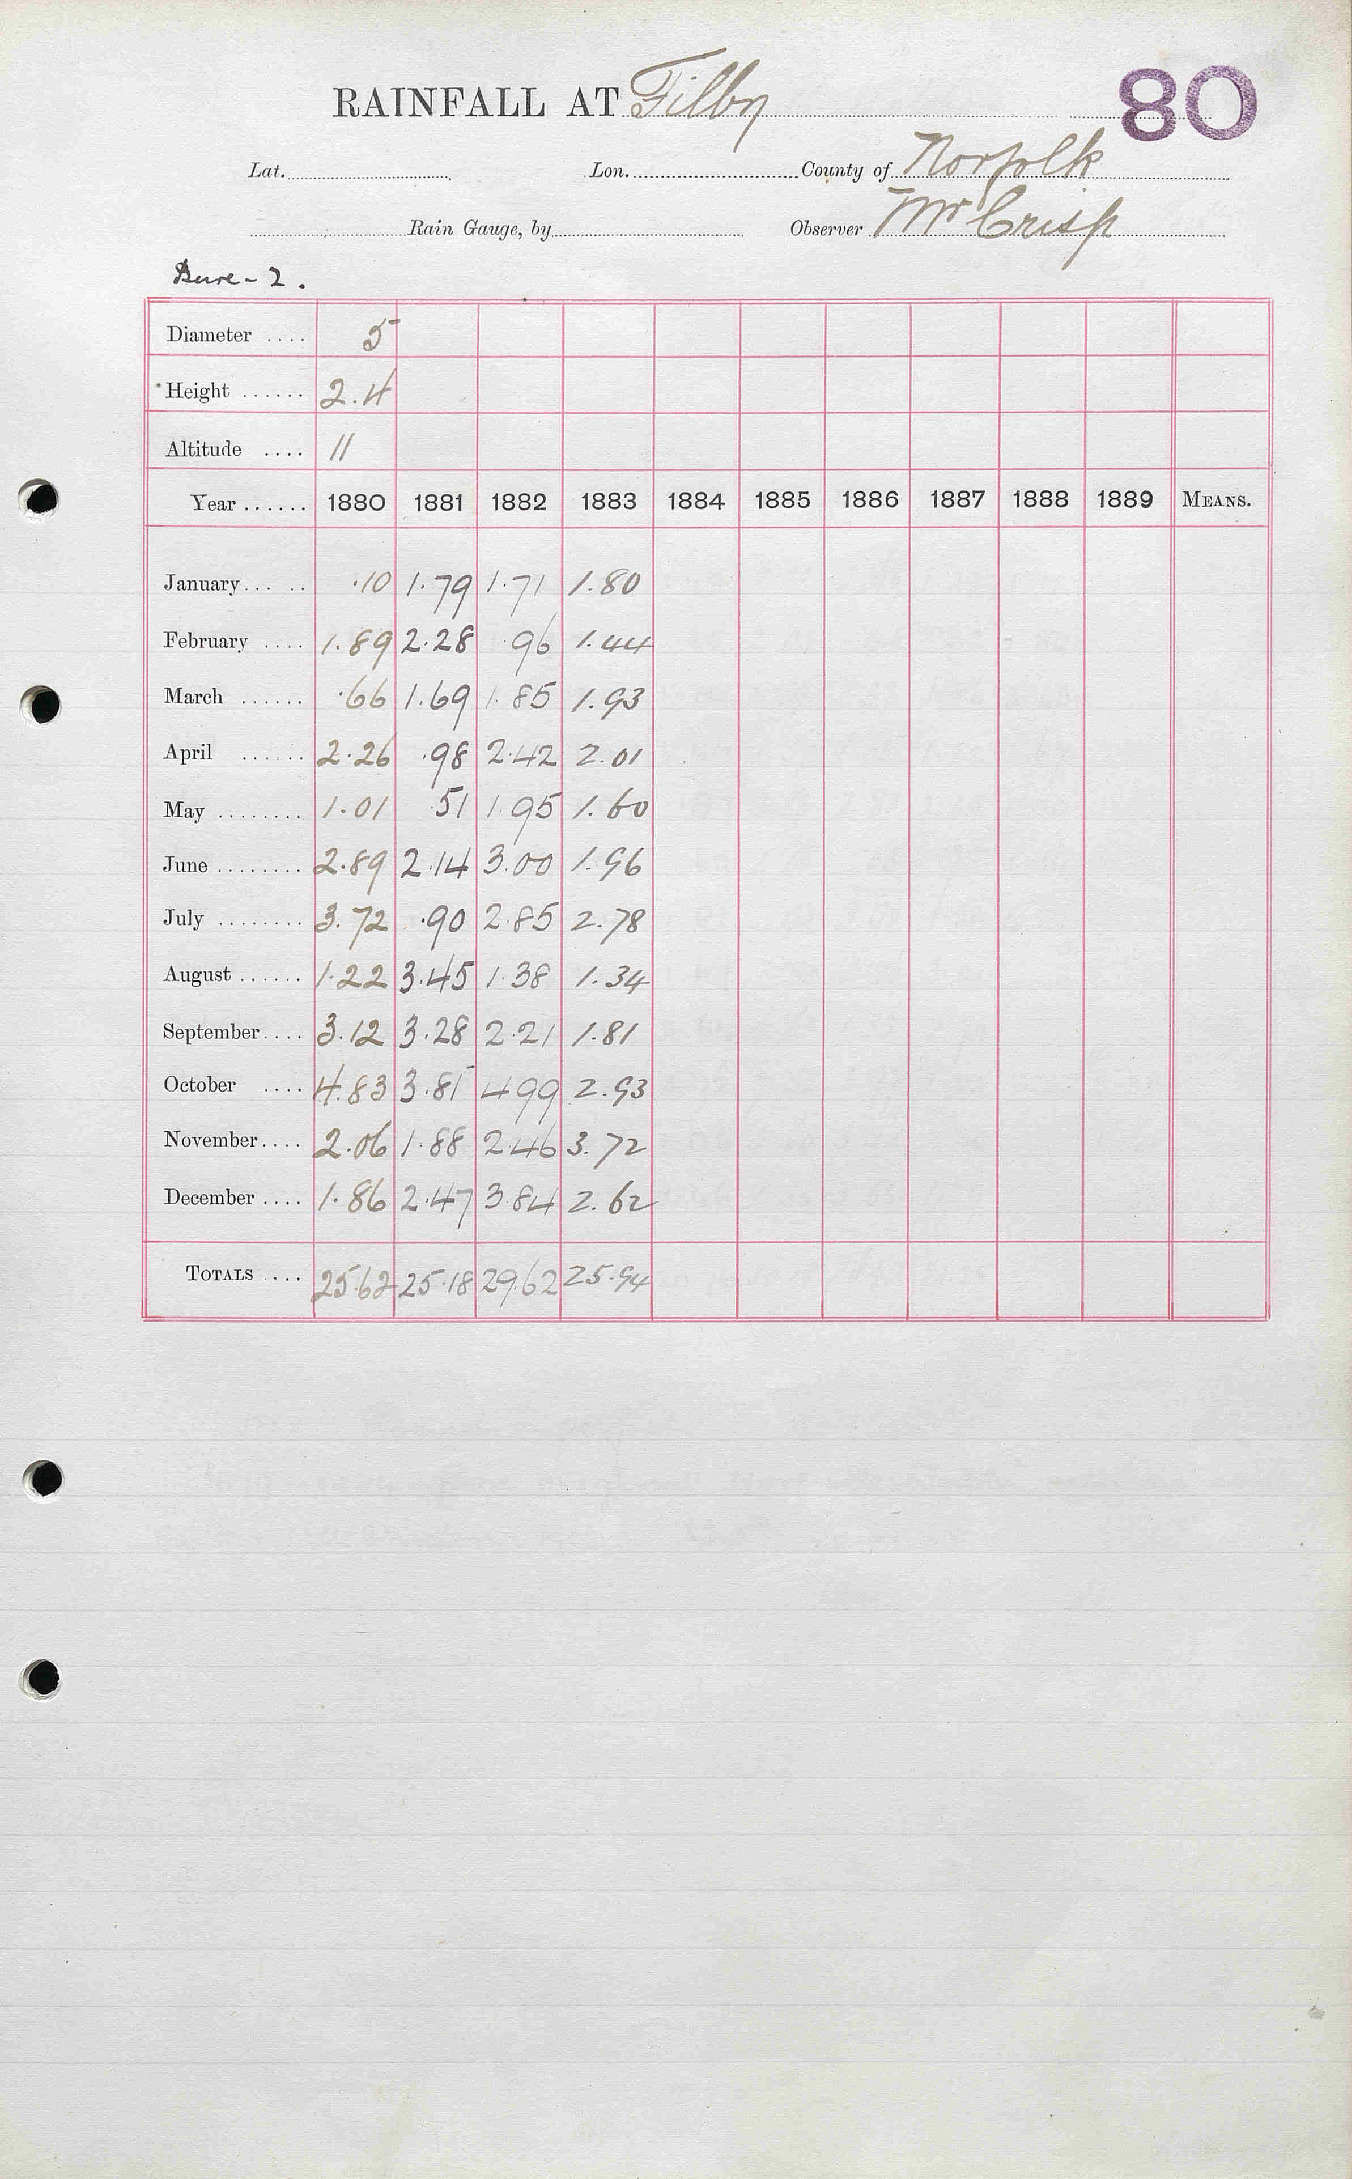 80
RAINFALL AT Filby
Lat. Lon. County of Norfolk
Rain Gauge, by Observer Mr Crisp
Bure - 2.
Diameter .... 5
Height ...... 2.4
Altitude .... 11
Year ...... 1880 1881 1882 1883 1884 1885 1886 1887 1888 1889 MEANS.
January... .. .10 1.79 1.71 1.80
February .... 1.89 2.28 .96 1.44
March ...... .66 1.69 1.85 1.93
April ...... 2.26 .98 2.42 2.01
May ........ 1.01 .51 1.95 1.60
June ........ 2.89 2.14 3.00 1.96
July ........ 3.72 .90 2.85 2.78
August ...... 1.22 3.45 1.38 1.34
September.... 3.12 3.28 2.21 1.81
October .... 4.83 3.81 4.99 2.93
November.... 2.06 1.88 2.46 3.72
December .... 1.86 2.47 3.84 2.62
TOTALS ... 25.62 25.18 29.62 25.94